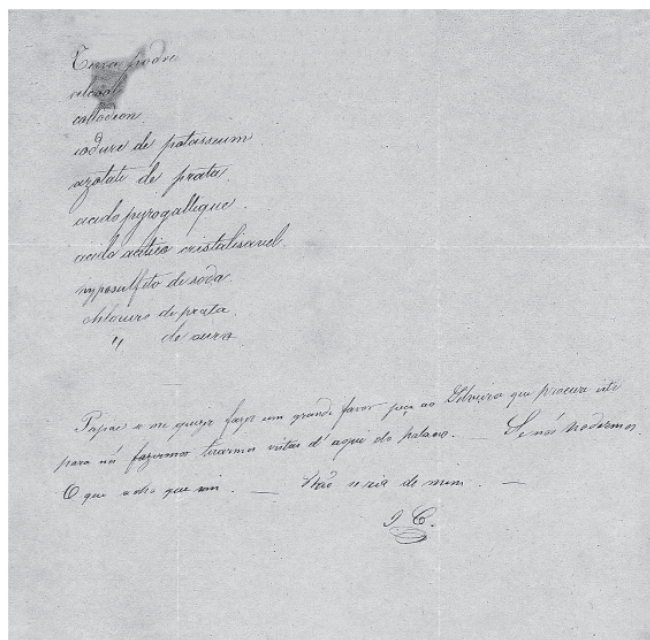 Terra podre
alcool
collodion
iodure de potasseum
azotate de prata.
acido pyrogallique.
acido acetico cristalisavel.
hyposulfito de soda.
chlorure de prata.
" de ouro.
Papae se me quizer fazer um grande favor peça ao Silveira que procure isto
para nós fazermos tirarmos vistas d'aqui do palacio. — Se nós podermos.
O que acho que sim. — Não se ria de mim. —
I C.